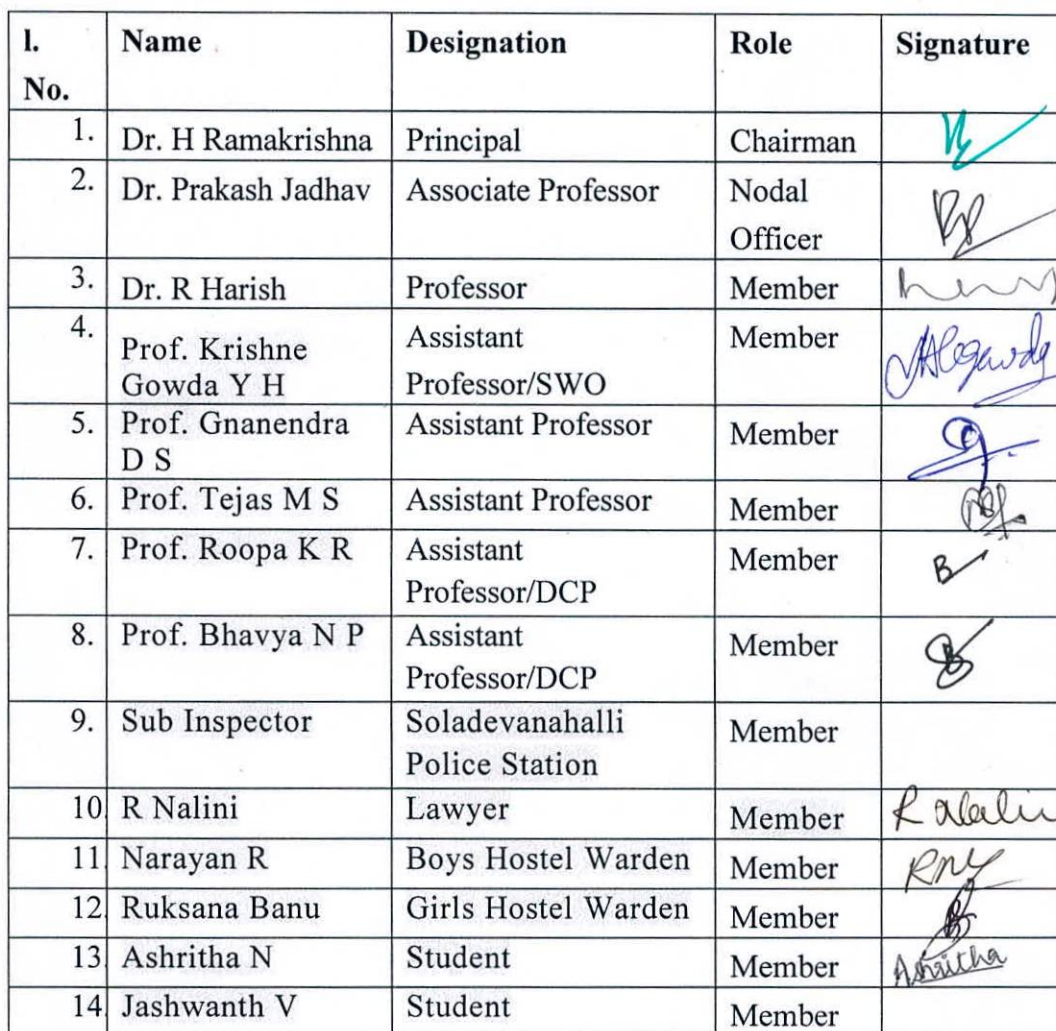 l. No. Name Designation Role Signature
1. Dr. H Ramakrishna Principal Chairman
2. Dr. Prakash Jadhav Associate Professor Nodal Officer
3. Dr. R Harish Professor Member
4. Prof. Krishne Gowda Y H Assistant Professor/SWO Member
5. Prof. Gnanendra D S Assistant Professor Member
6. Prof. Tejas M S Assistant Professor Member
7. Prof. Roopa K R Assistant Professor/DCP Member
8. Prof. Bhavya N P Assistant Professor/DCP Member
9. Sub Inspector Soladevanahalli Police Station Member
10. R Nalini Lawyer Member R Nalini
11. Narayan R Boys Hostel Warden Member
12. Ruksana Banu Girls Hostel Warden Member
13. Ashritha N Student Member Ashritha
14. Jashwanth V Student Member